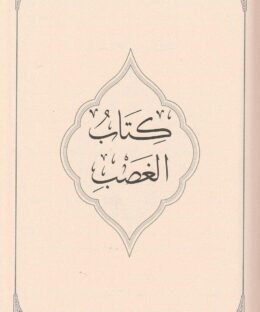 كِتَابُ
الغَصْبِ